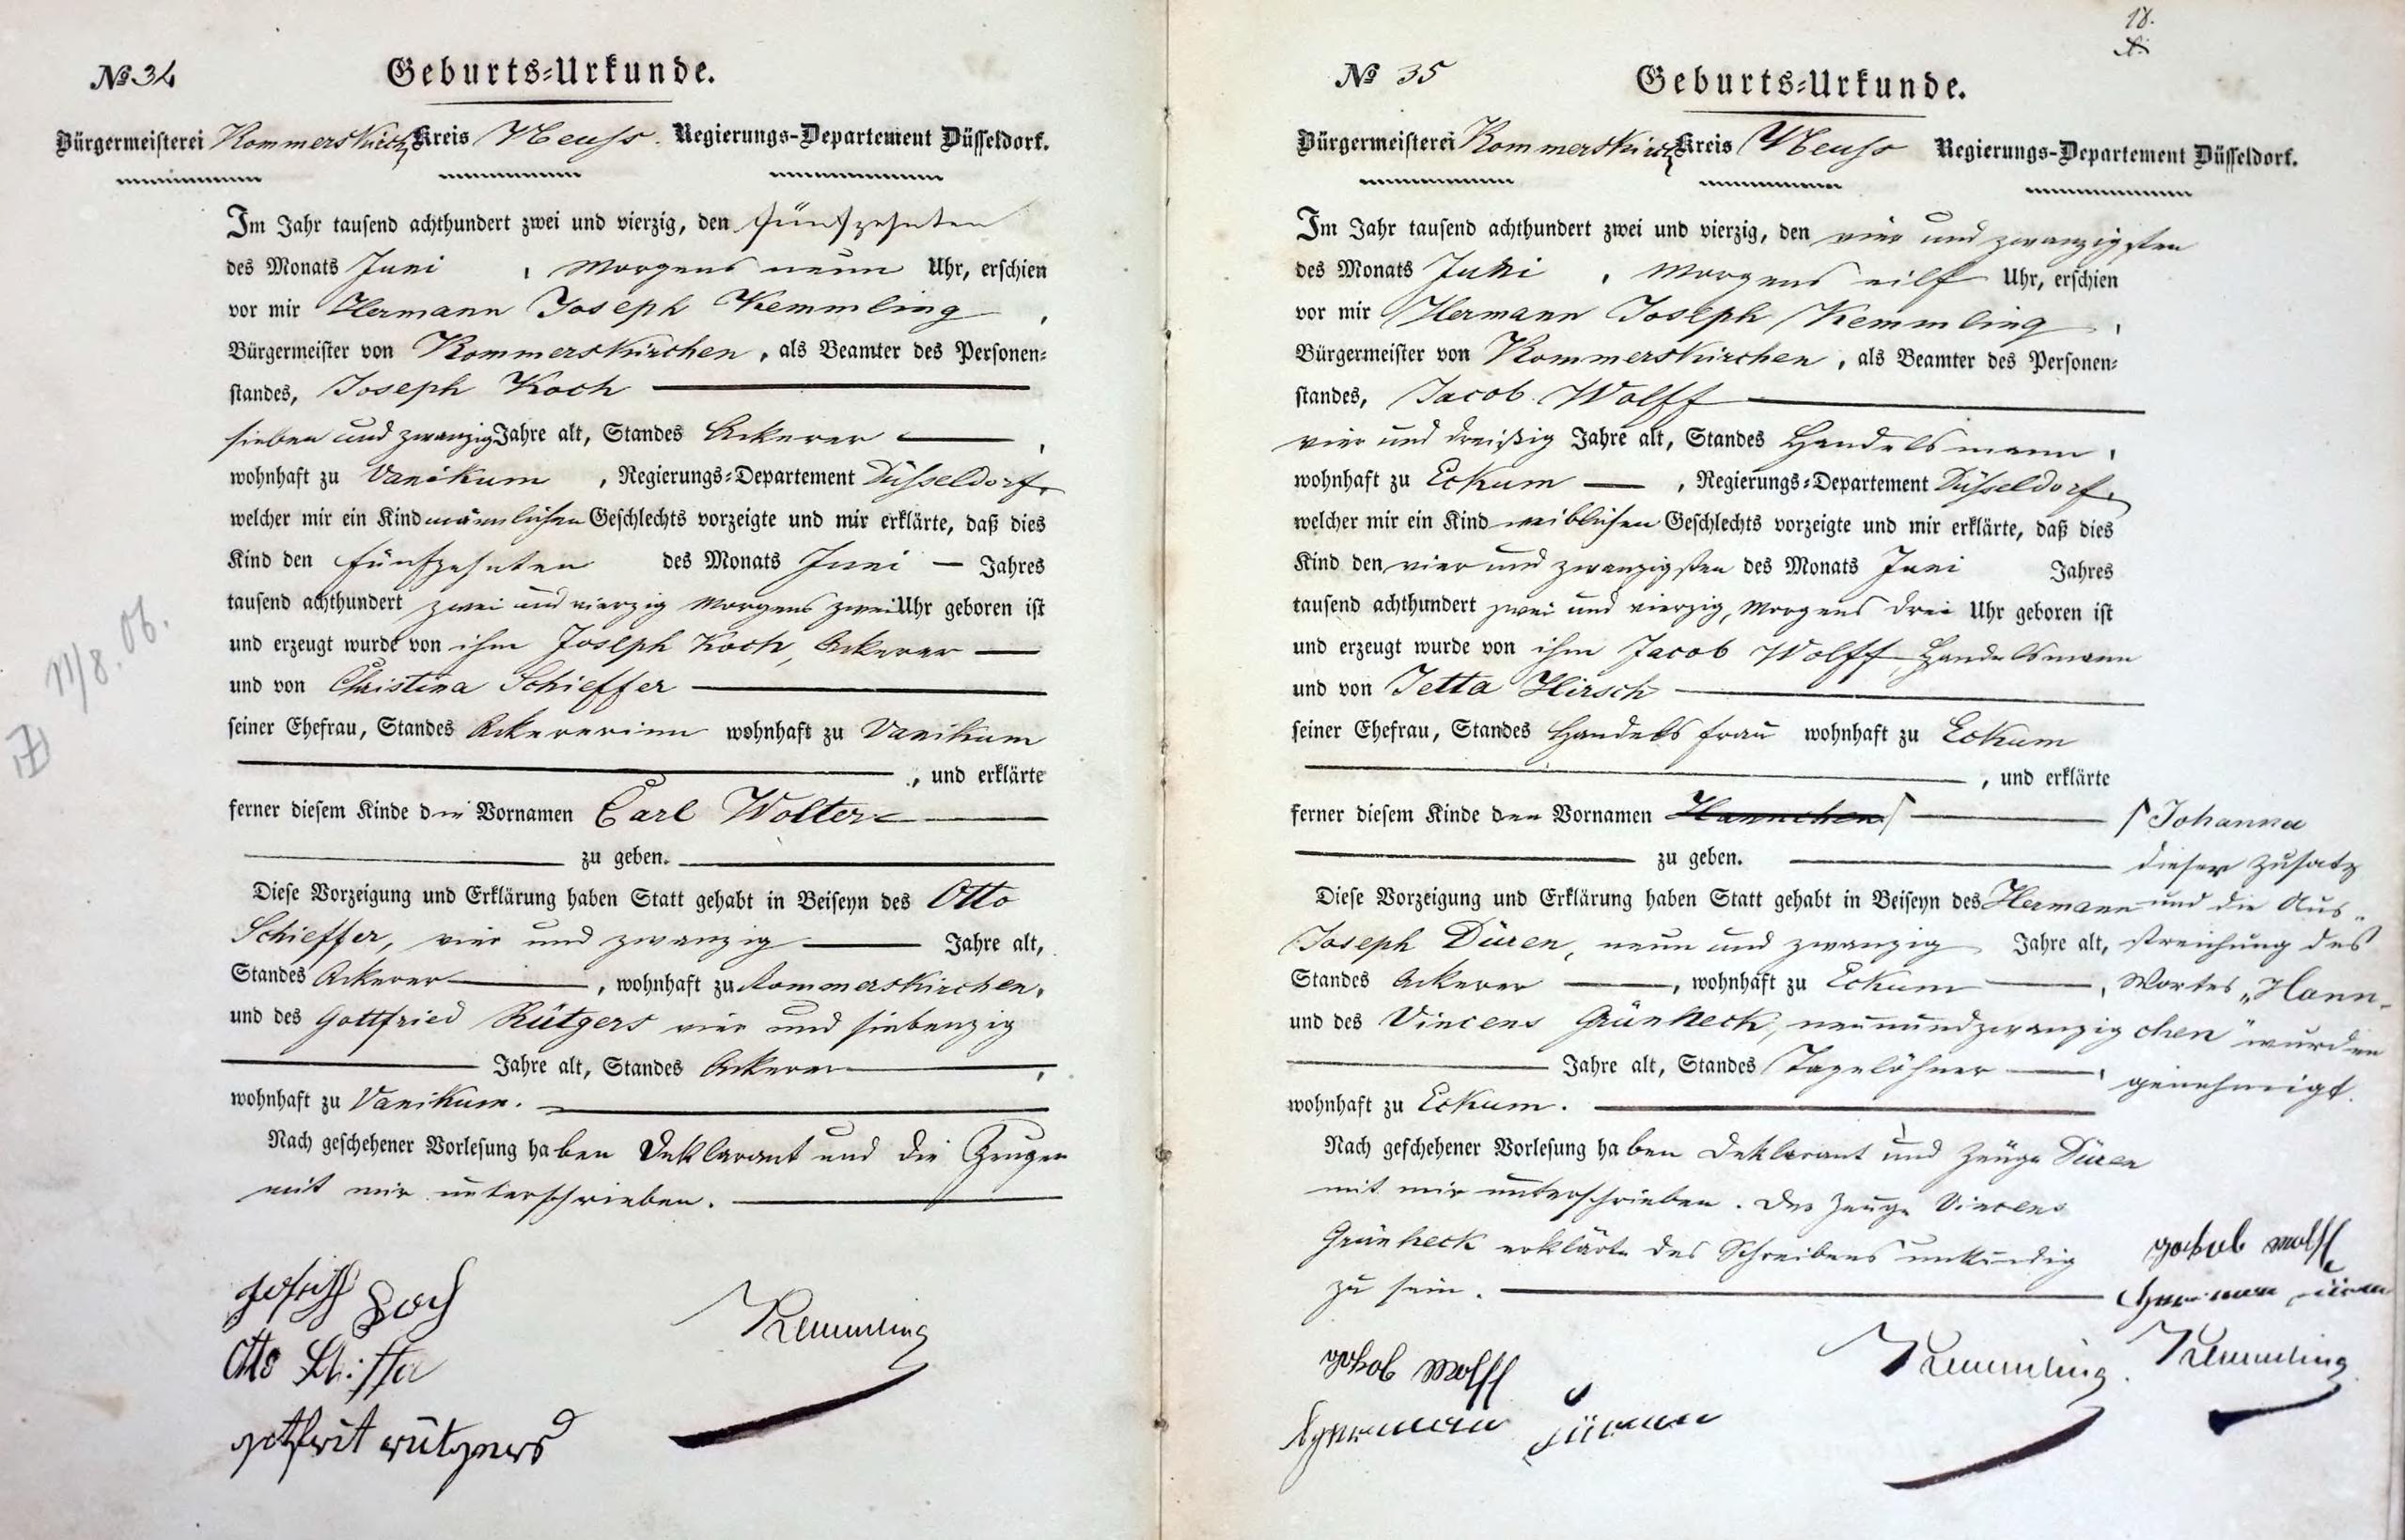 № 34
Geburts-Urkunde.
Bürgermeisterei Rommerskirch. Kreis Neuss. Regierungs-Departement Düsseldorf.
Im Jahr tausend achthundert zwei und vierzig, den fünfzehnten
des Monats Juni , Morgens neun Uhr, erschien
vor mir Hermann Joseph Kemmling ,
Bürgermeister von Rommerskirchen , als Beamter des Personen-
standes, Joseph Koch
sieben und zwanzig Jahre alt, Standes Ackerer ,
wohnhaft zu Vanikum , Regierungs-Departement Düsseldorf,
welcher mir ein Kind männlichen Geschlechts vorzeigte und mir erklärte, daß dies
Kind den fünfzehnten des Monats Juni Jahres
tausend achthundert zwei und vierzig Morgens zwei Uhr geboren ist
und erzeugt wurde von ihm Joseph Koch, Ackerer
und von Christina Schieffer
seiner Ehefrau, Standes Ackererinn wohnhaft zu Vanikum
, und erklärte
ferner diesem Kinde die Vornamen Carl Wolter
zu geben.
Diese Vorzeigung und Erklärung haben Statt gehabt in Beiseyn des Otto
Schieffer, vier und zwanzig Jahre alt,
Standes Ackerer , wohnhaft zu Rommerskirchen,
und des Gottfried Rütgers vier und siebenzig
Jahre alt, Standes Ackerer ,
wohnhaft zu Vanikum.
Nach geschehener Vorlesung haben Deklarant und die Zeugen
mit mir unterschrieben.
Joseph Koch
Kemmling
Otto Schiffer
gotfrit rütgers
11/8. 06.
18.
№ 35
Geburts-Urkunde.
Bürgermeisterei Rommerskirch. Kreis Neuss Regierungs-Departement Düsseldorf.
Im Jahr tausend achthundert zwei und vierzig, den vier und zwanzigsten
des Monats Juni , Morgens eilf Uhr, erschien
vor mir Hermann Joseph Kemmling ,
Bürgermeister von Rommerskirchen , als Beamter des Personen-
standes, Jacob Wolff
vier und dreißig Jahre alt, Standes Handelsmann ,
wohnhaft zu Eckum , Regierungs-Departement Düsseldorf,
welcher mir ein Kind weiblichen Geschlechts vorzeigte und mir erklärte, daß dies
Kind den vier und zwanzigsten des Monats Juni Jahres
tausend achthundert zwei und vierzig, Morgens drei Uhr geboren ist
und erzeugt wurde von ihm Jacob Wolff Handelsmann
und von Jetta Hirsch
seiner Ehefrau, Standes Handelsfrau wohnhaft zu Eckum
, und erklärte
ferner diesem Kinde den Vornamen Hannchen
zu geben.
Diese Vorzeigung und Erklärung haben Statt gehabt in Beiseyn des Hermann
Joseph Düren, neun und zwanzig Jahre alt,
Standes Ackerer , wohnhaft zu Eckum ,
und des Vincens Grünheck, neunundzwanzig
Jahre alt, Standes Tagelöhner ,
wohnhaft zu Eckum.
Nach geschehener Vorlesung haben Deklarant und Zeuge Düren
mit mir unterschrieben. Der Zeuge Vincens
Grünheck erklärte des Schreibens unkundig
zu sein.
Jakob Wolff
Kemmling
Hermann Düren
Johanna
dieser Zusatz
und die Aus-
streichung des
Wortes „Hann-
chen" wurden
genehmigt.
Jakob Wolff
Herman Düren
Kemmling